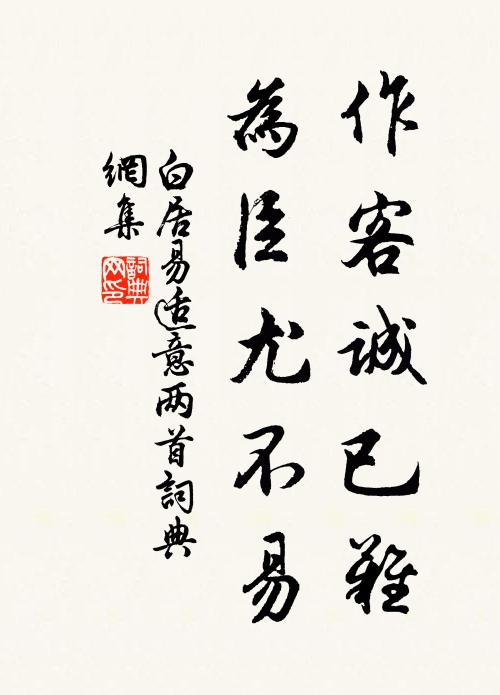 作客誠已難
為臣尤不易
白居易適意两首詞典
網集
詞典網印